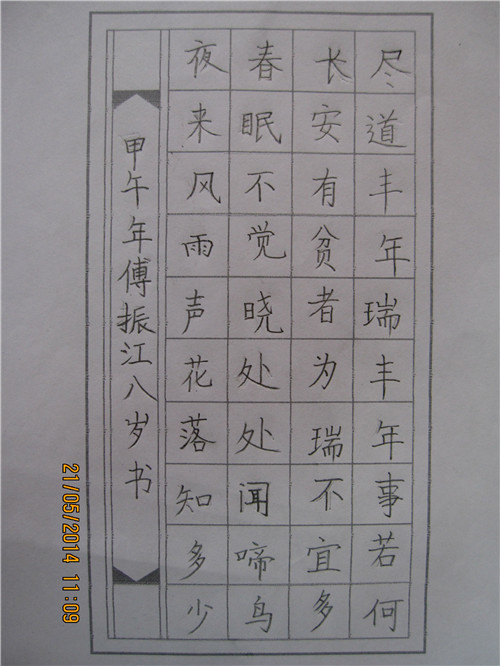 尽道丰年瑞丰年事若何
长安有贫者为瑞不宜多
春眠不觉晓处处闻啼鸟
夜来风雨声花落知多少
甲午年傅振江八岁书
21/05/2014 11:09